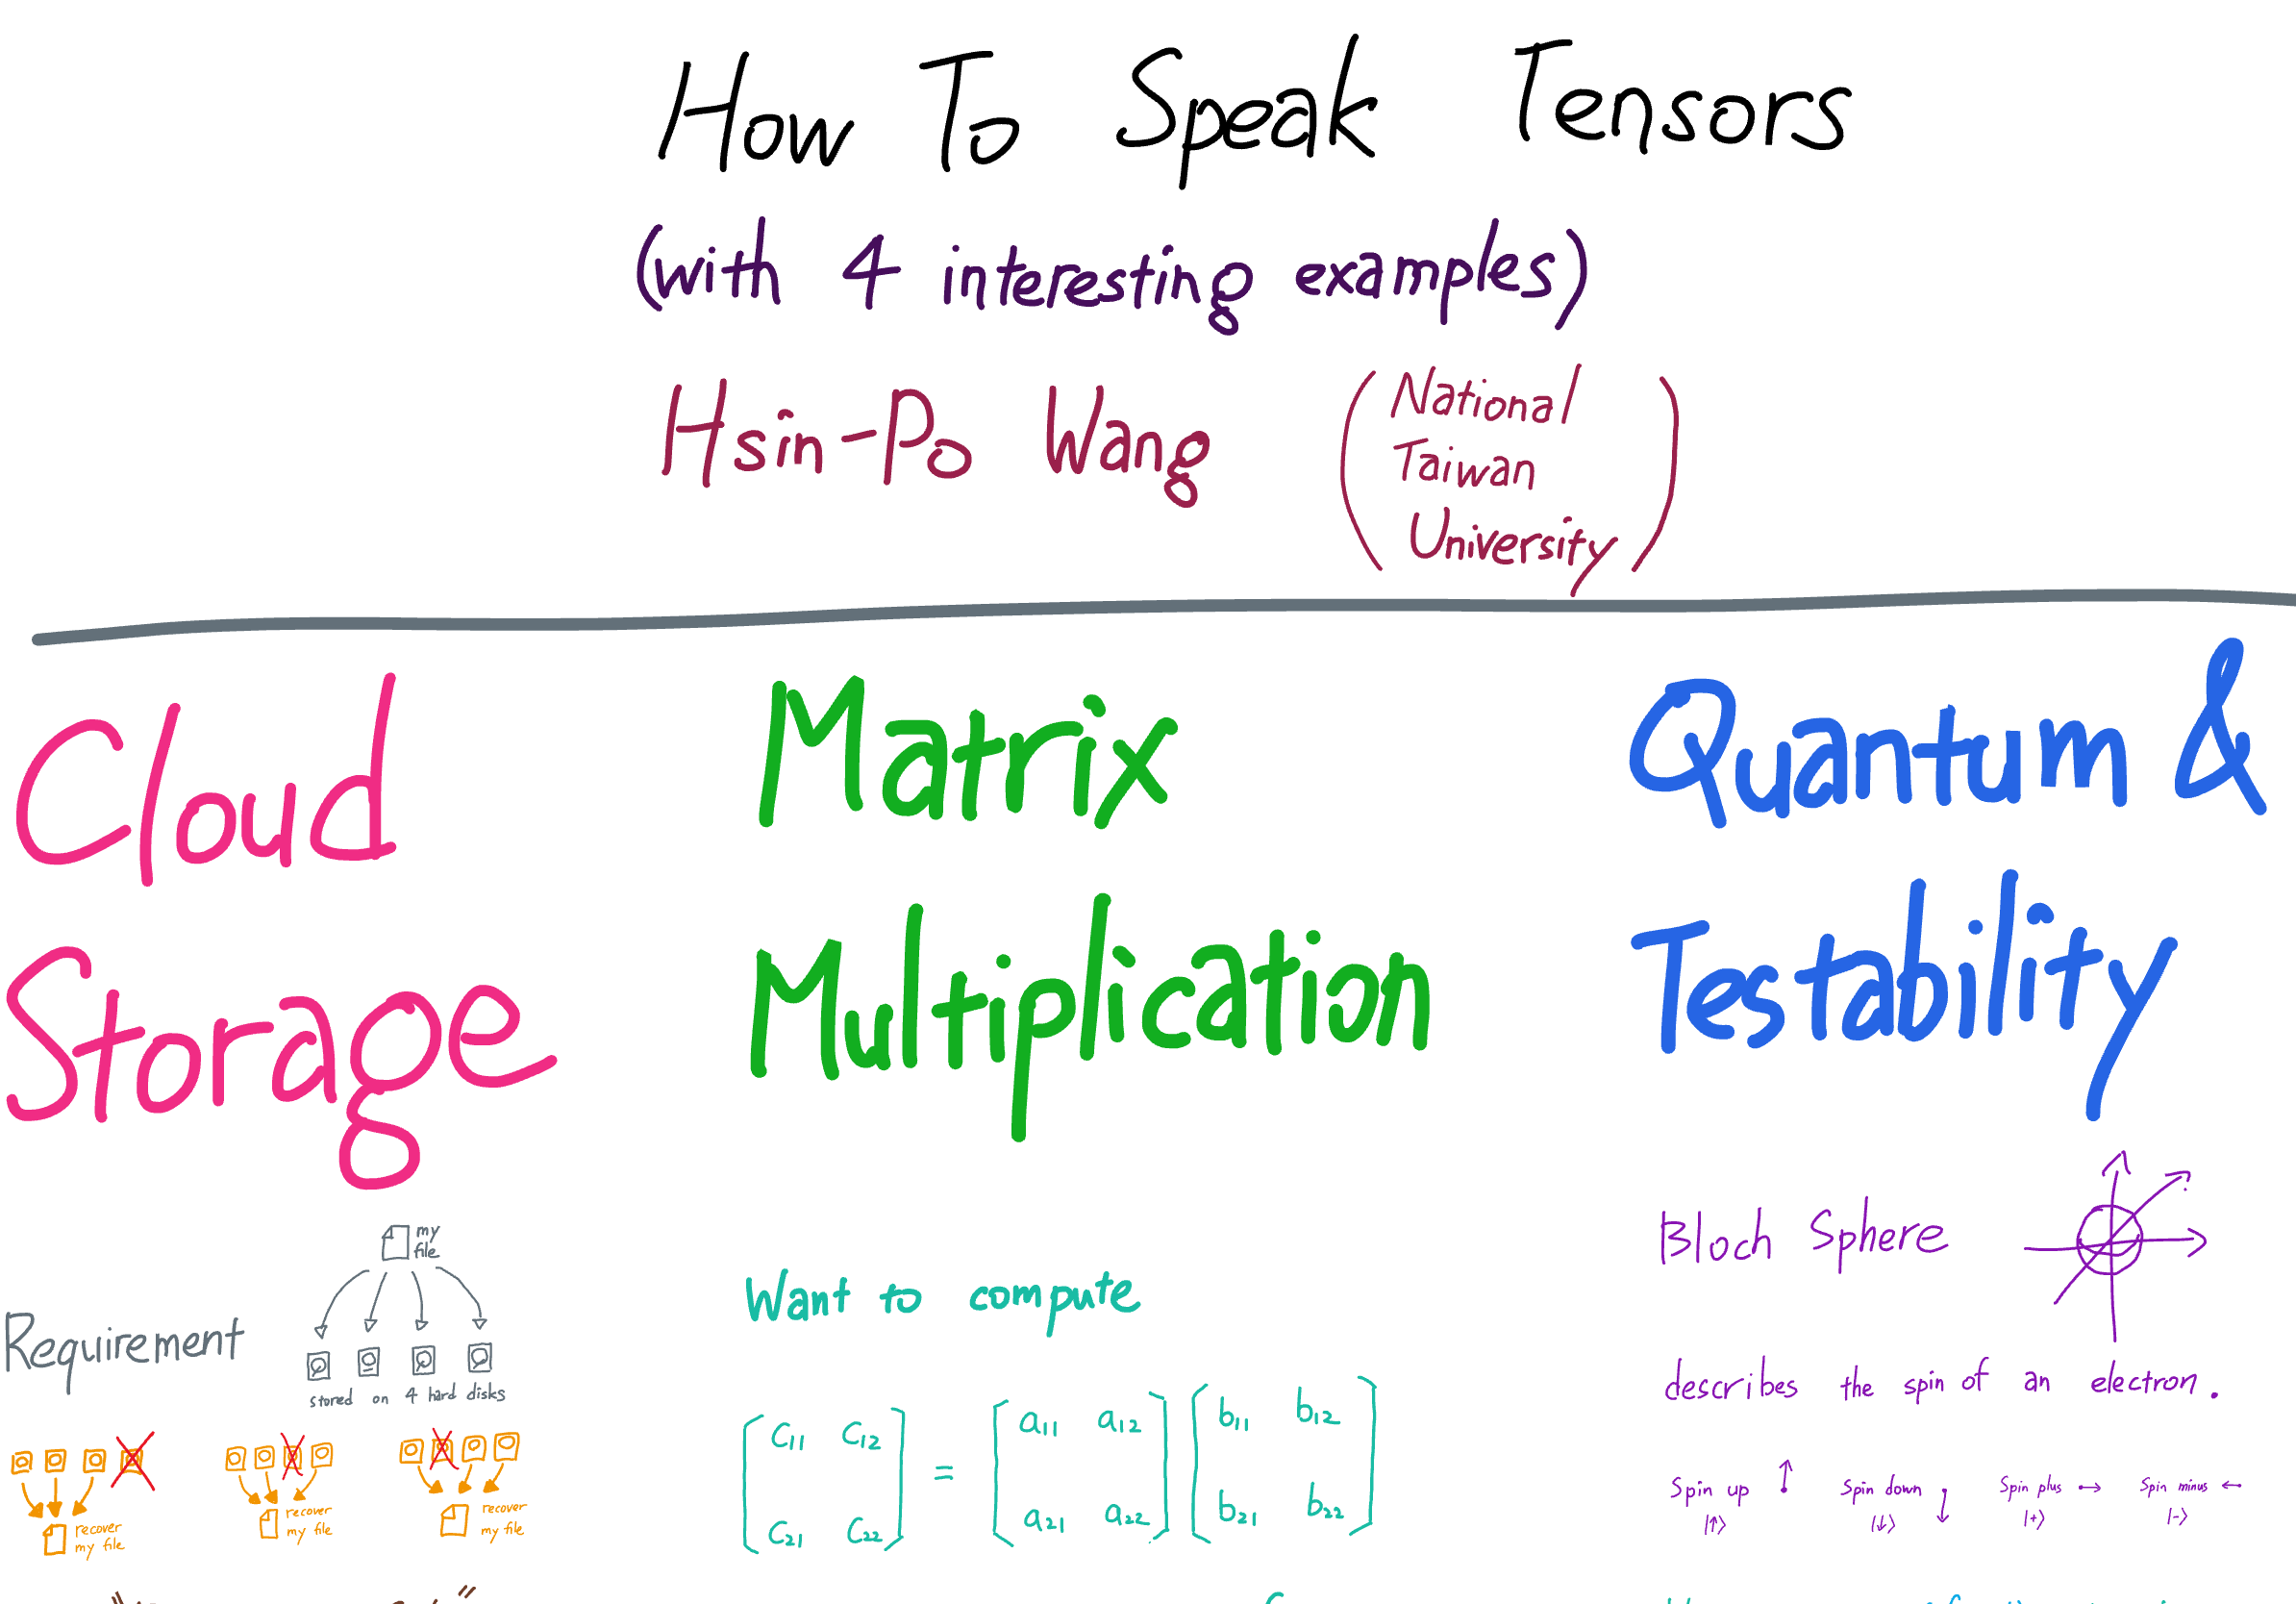 How To Speak Tensors
(with 4 interesting examples)
Hsin-Po Wang
(National
Taiwan
University)
Cloud
Storage
my
file
Requirement
stored on 4 hard disks
recover
my file
recover
my file
recover
my file
Matrix
Multiplication
Want to compute
[c₁₁ c₁₂] = [a₁₁ a₁₂] [b₁₁ b₁₂]
[c₂₁ c₂₂] [a₂₁ a₂₂] [b₂₁ b₂₂]
Quantum &
Testability
Bloch Sphere
describes the spin of an electron.
Spin up ↑ Spin down ↓ Spin plus → Spin minus ←
|↑⟩ |↓⟩ |+⟩ |-⟩